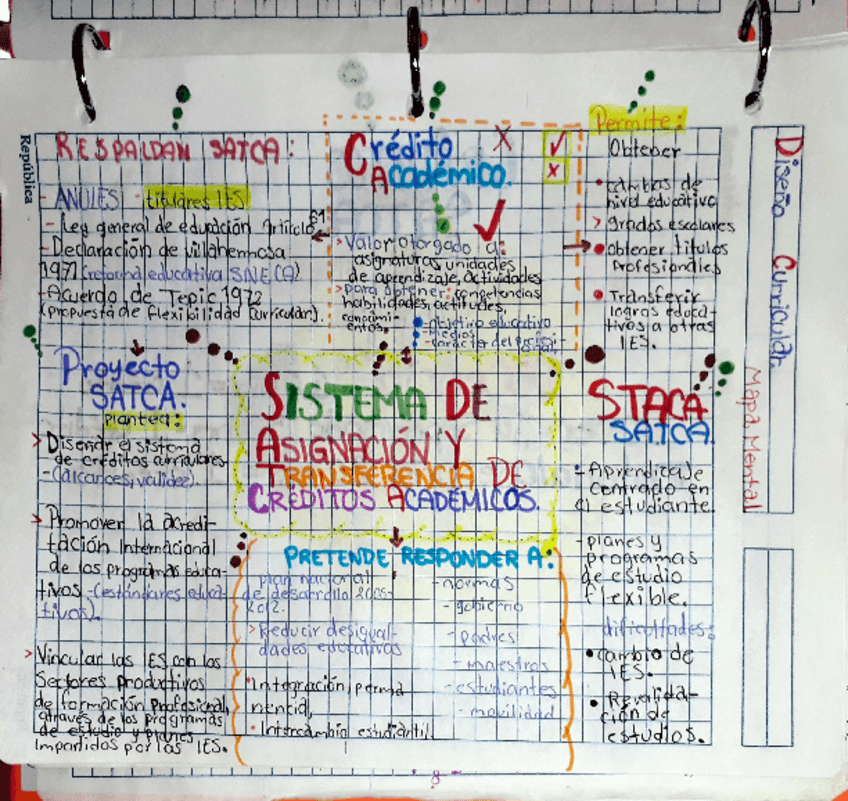 República
RESPALDAN SATCA:
- ANUIES - titulares IES
- Ley general de educación artículo 61
- Declaración de villahermosa
1971 (reforma educativa S.N.E.C.A)
- Acuerdo de Tepic 1972
(propuesta de flexibilidad curricular).
Crédito
Académico.
> Valor otorgado a:
asignaturas, unidades
de aprendizaje, actividades
> para obtener: competencias
habilidades, actitudes,
conocimi-
entos.
- objetivo educativo
- medios
Permite:
Obtener
• cambios de
nivel educativo
> grados escolares
• obtener titulos
Profesionales
• Transferir
logros educa-
tivos a otras
IES.
Diseño Curricular
Mapa Mental
Proyecto
SATCA.
plantea:
> Diseñar el sistema
de créditos curriculares
- (alcances, validez).
> Promover la acredi-
tación Internacional
de los programas educa-
tivos - (estándares educa-
tivos).
> Vincular las IES con los
Sectores Productivos
de formación Profesional,
através de los programas
de estudio y planes
impartidos por las IES.
SISTEMA DE
ASIGNACIÓN Y
TRANSFERENCIA DE
CRÉDITOS ACADÉMICOS.
PRETENDE RESPONDER A:
plan nacional
de desarrollo
2012.
> Reducir desigual-
dades educativas
• Integración, perma
nencia,
• Intercambio estudiantil
- normas
- gobierno
- padres
- maestros
- estudiantes
- movilidad
STACA
SATCA
- Aprendizaje
centrado en
el estudiante.
- planes y
programas
de estudio
flexible.
dificultades:
• cambio de
IES.
• Revalida-
ción de
estudios.
8